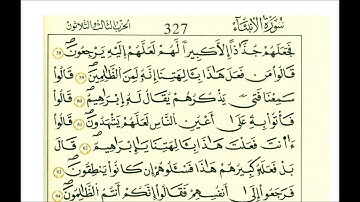 سُورَةُ الأَنْبِيَاءِ 327 الحزب الثالث والثلاثون
فَجَعَلَهُمْ جُذَٰذًا إِلَّا كَبِيرًا لَّهُمْ لَعَلَّهُمْ إِلَيْهِ يَرْجِعُونَ
قَالُوا مَن فَعَلَ هَٰذَا بِـَٔالِهَتِنَا إِنَّهُ لَمِنَ الظَّٰلِمِينَ قَالُوا
سَمِعْنَا فَتًى يَذْكُرُهُمْ يُقَالُ لَهُ إِبْرَٰهِيمُ قَالُوا
فَأْتُوا بِهِ عَلَىٰ أَعْيُنِ النَّاسِ لَعَلَّهُمْ يَشْهَدُونَ قَالُوا
ءَأَنتَ فَعَلْتَ هَٰذَا بِـَٔالِهَتِنَا يَٰإِبْرَٰهِيمُ قَالَ
بَلْ فَعَلَهُ كَبِيرُهُمْ هَٰذَا فَسْـَٔلُوهُمْ إِن كَانُوا يَنطِقُونَ
فَرَجَعُوا إِلَىٰ أَنفُسِهِمْ فَقَالُوا إِنَّكُمْ أَنتُمُ الظَّٰلِمُونَ